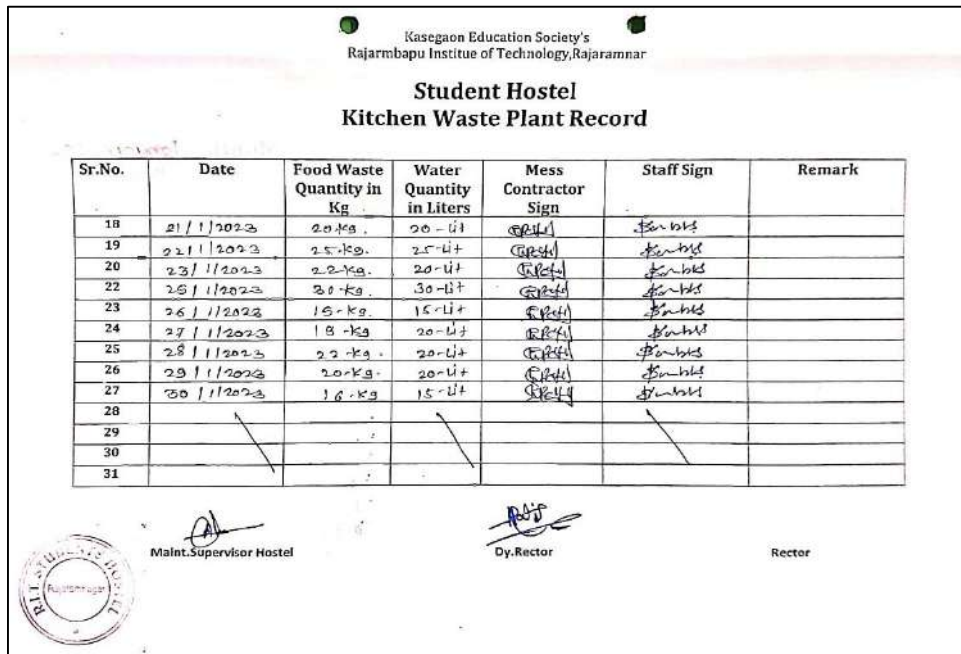 Kasegaon Education Society's
Rajarmbapu Institue of Technology,Rajaramnar
Student Hostel
Kitchen Waste Plant Record
Sr.No. Date Food Waste Quantity in Kg Water Quantity in Liters Mess Contractor Sign Staff Sign Remark
18 21/1/2023 20 kg. 20-Lit
19 22/1/2023 25-kg. 25-Lit
20 23/1/2023 22-kg. 20-Lit
22 25/1/2023 30-kg. 30-Lit
23 26/1/2023 15-kg. 15-Lit
24 27/1/2023 18-kg 20-Lit
25 28/1/2023 22-kg. 20-Lit
26 29/1/2023 20-kg. 20-Lit
27 30/1/2023 16-kg 15-Lit
28
29
30
31
Maint.Supervisor Hostel Dy.Rector Rector
R.I.T. STUDENTS HOSTEL
Rajaramnagar